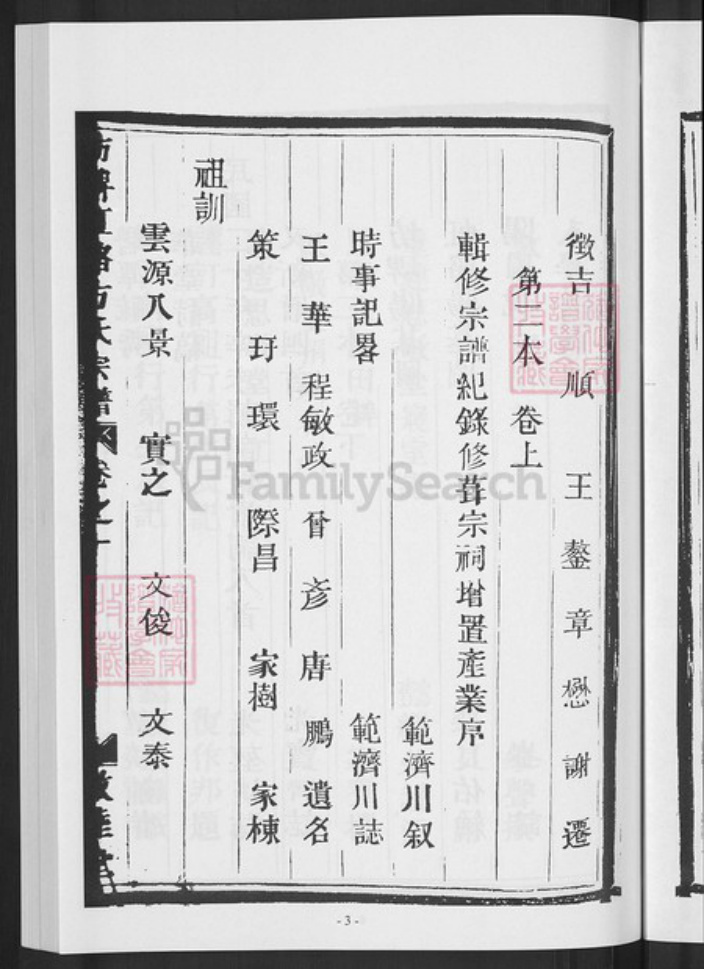 徵吉 順 王鏊 章懋 謝遷
第一本 卷上
輯修宗譜紀錄修葺宗祠增置產業序
範濟川叙
時事記畧 範濟川誌
王華 程敏政 晉彥 唐鵬 遺名
策 玗 環 際昌 家樹 家棟
祖訓
雲源八景 實之 文俊 文泰
方氏宗譜 卷之一
FamilySearch
- 3 -